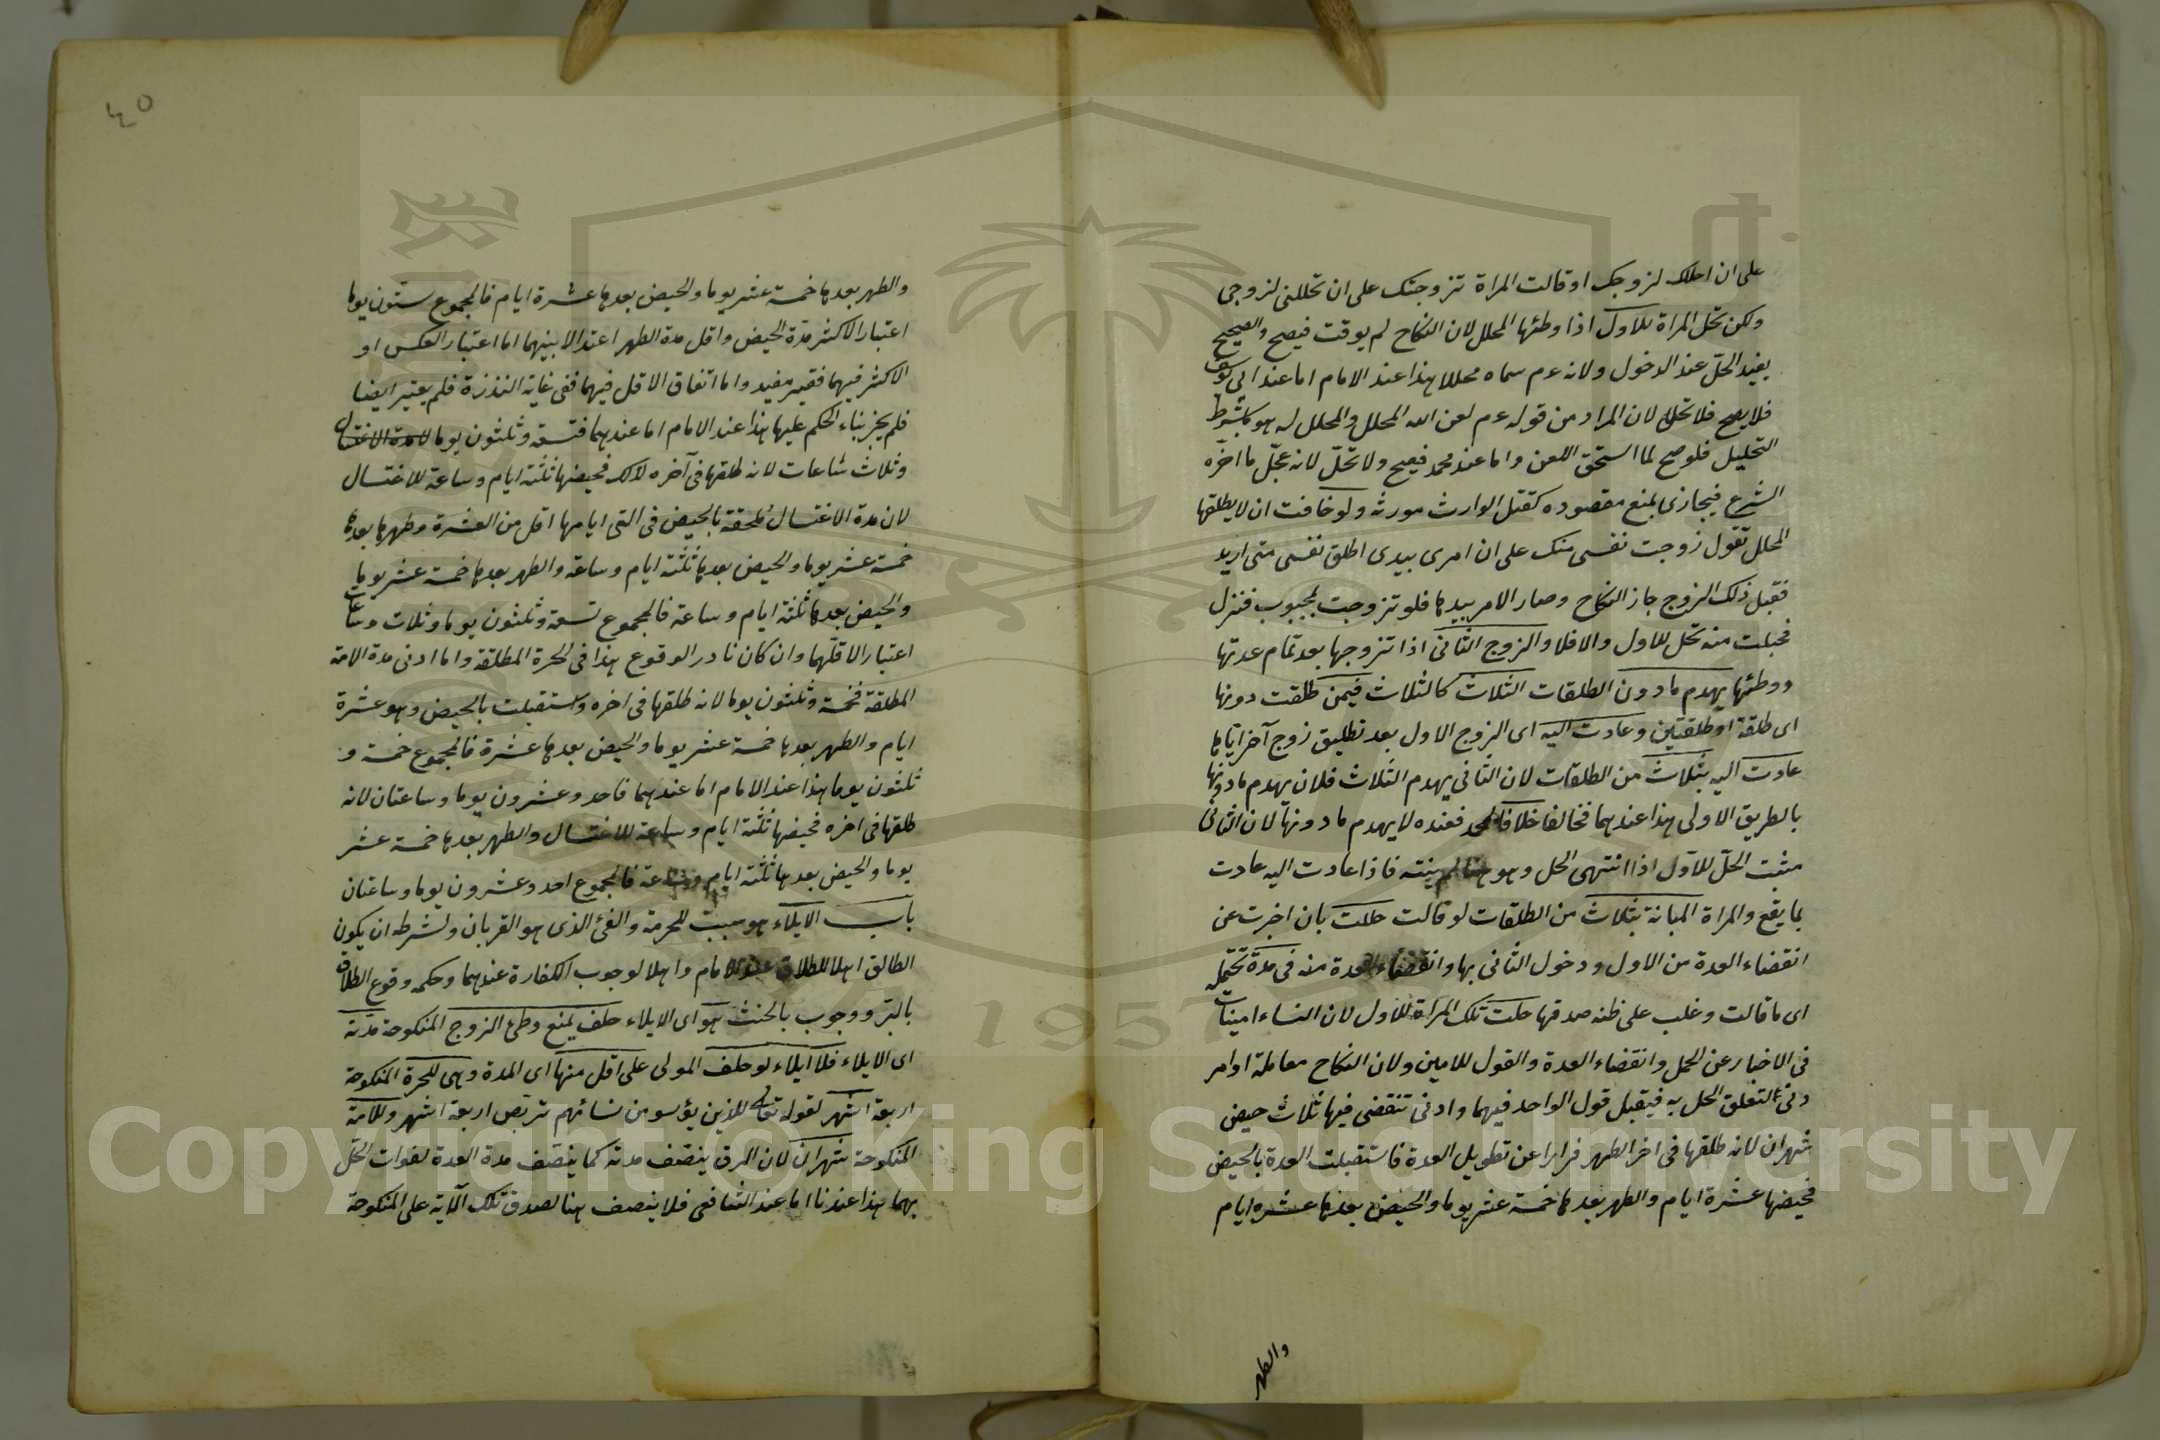 على ان احلك لزوجك او قالت المراة تزوجتك على ان تحللنى لزوجى
ولكن تحل المراة للاول اذا وطئها المحلل لان النكاح لم يوقت فيصح والصحيح
يفيد الحل عند الدخول ولانه عم سماه محللا هذا عند الامام اما عند ابى يوسف
فلا يصح فلا تحل لان المراد من قوله عم لعن الله المحلل والمحلل له هو بشرط
التحليل فلو صح لما استحق اللعن واما عند محمد فيصح ولا تحل لانه عجل ما اخره
الشرع فيجازى بمنع مقصوده كقتل الوارث مورثه ولو خافت ان لا يطلقها
المحلل تقول زوجت نفسى منك على ان امرى بيدى اطلق نفسى متى اريد
فقبل ذلك الزوج جاز النكاح وصار الامر بيدها فلو تزوجت بمجبوب فنزل
فحبلت منه تحل للاول والا فلا والزوج الثانى اذا تزوجها بعد تمام عدتها
ووطئها يهدم ما دون الطلقات الثلاث كالثلاث فيمن طلقت دونها
اى طلقة او طلقتين وعادت اليه اى الزوج الاول بعد تطليق زوج آخر اياها
عادت اليه بثلاث من الطلقات لان الثانى يهدم الثلاث فلان يهدم ما دونها
بالطريق الاولى هذا عندهما فخالفا خلافا لمحمد فعنده لا يهدم ما دونها لان الثانى
مثبت الحل للاول اذا انتهى الحل وهو هنا لم ينته فاذا عادت اليه عادت
بما يقع والمراة المبانة بثلاث من الطلقات لو قالت حللت بان اخبرت عن
انقضاء العدة من الاول ودخول الثانى بها وانقضاء العدة منه فى مدة تحتمله
اى ما قالت وغلب على ظنه صدقها حلت تلك المراة للاول لان النساء امينات
فى الاخبار عن الحمل وانقضاء العدة والقول للامين ولان النكاح معاملة او امر
دينى لتعلق الحل به فيقبل قول الواحد فيهما وادنى تنقضى فيها ثلاث حيض
شهران لانه طلقها فى اخر الطهر فرارا عن تطويل العدة فاستقبلت العدة بالحيض
فحيضها عشرة ايام والطهر بعدها خمسة عشر يوما والحيض بعدها عشرة ايام
والطهر
٤٥
والطهر بعدها خمسة عشر يوما والحيض بعدها عشرة ايام فالمجموع ستون يوما
اعتبار الاكثر مدة الحيض واقل مدة الطهر اعتدالا بينهما اما اعتبار العكس او
الاكثر فيهما فغير مفيد واما اتفاق الاقل فيهما ففى غاية الندرة فلم يعتبر ايضا
فلم يجز بناء الحكم عليها هذا عند الامام اما عندهما فتسعة وثلثون يوما لامدة الاغتسال
وثلاث ساعات لانه طلقها فى آخره لذلك فحيضها ثلثة ايام وساعة للاغتسال
لان مدة الاغتسال ملحقة بالحيض فى التى ايامها اقل من العشرة وطهرها بعدها
خمسة عشر يوما والحيض بعدها ثلثة ايام وساعة والطهر بعدها خمسة عشر يوما
والحيض بعدها ثلثة ايام وساعة فالمجموع تسعة وثلثون يوما وثلاث ساعات
اعتبارا لاقلهما وان كان نادر الوقوع هذا فى الحرة المطلقة واما ادنى مدة الامة
المطلقة فخمسة وثلثون يوما لانه طلقها فى اخره واستقبلت بالحيض وهو عشرة
ايام والطهر بعدها خمسة عشر يوما والحيض بعدها عشرة فالمجموع خمسة و
ثلثون يوما هذا عند الامام اما عندهما فاحد وعشرون يوما وساعتان لانه
طلقها فى اخره فحيضها ثلثة ايام وساعة للاغتسال والطهر بعدها خمسة عشر
يوما والحيض بعدها ثلثة ايام وساعة فالمجموع احد وعشرون يوما وساعتان
باب الايلاء هو سبب للحرمة والفئ الذى هو القربان ولشرطه ان يكون
الطالق اهلا للطلاق عند الامام واهلا لوجوب الكفارة عندهما وحكمه وقوع الطلاق
بالبر ووجوب بالحنث هو اى الايلاء حلف يمنع وطئ الزوج المنكوحة مدته
اى الايلاء فلا ايلاء لو حلف المولى على اقل منها اى المدة وهى للحرة المنكوحة
اربعة اشهر لقوله تعالى للذين يؤلون من نسائهم تربص اربعة اشهر وللامة
المنكوحة شهران لان الرق ينصف مدته كما ينصف مدة العدة لفوات الحل
بهما هذا عندنا اما عند الشافعى فلا ينصف هنا لصدق تلك الآية على المنكوحة
1957
Copyright © King Saud University